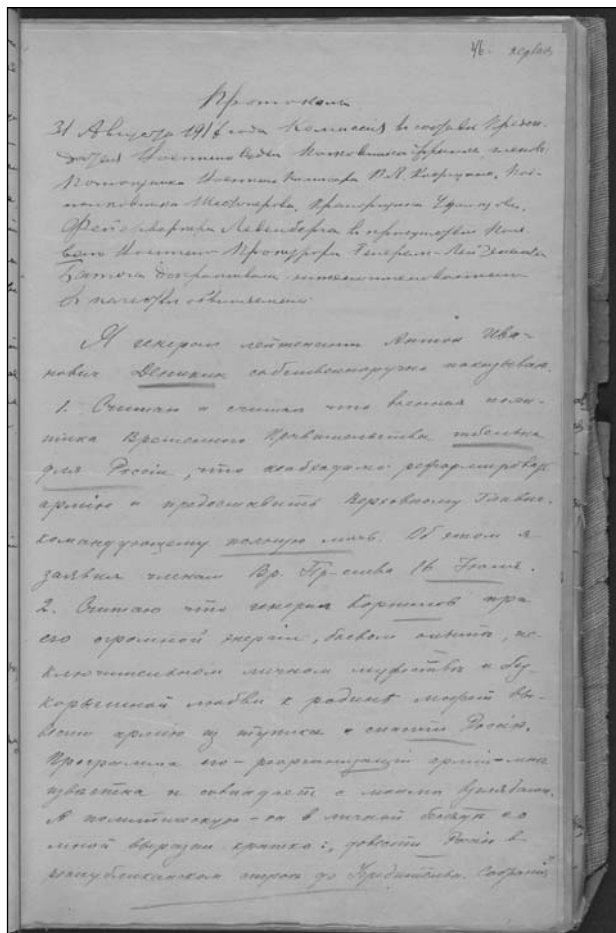 46.
Протоколъ
31 Августа 1917 года Комиссия в составе Предсе-
дателя Военного Суда
Помощника Военного Комиссара
Прапорщика Удальцова,
Левенберга в присутствии
Военного Прокурора Генерал-Лейтенанта
Батога допрашивала нижепоименованного
в качестве обвиняемого
Я генерал лейтенант Антон Ива-
нович Деникин собственноручно показываю.
1. Считаю и считал что военная поли-
тика Временного Правительства гибельна
для Россіи, что необходимо реформировать
армію и предоставить Верховному Главно-
командующему полную мочь. Об этом я
заявил членам Вр. Пр-ства 16 Іюля.
2. Считаю что генерал Корнилов при
его огромной энергіи, боевом опытѣ, ис-
ключительном личном мужествѣ и бес-
корыстной любви к родинѣ может вы-
вести армію из тупика и спасти Россію.
Программа его - реорганизаціи арміи - мнѣ
извѣстна и совпадает с моими взглядами.
А политическую - он в личной бесѣдѣ со
мной выразил кратко: "довести Россію в
республиканском строѣ до Учредительн. Собранія"